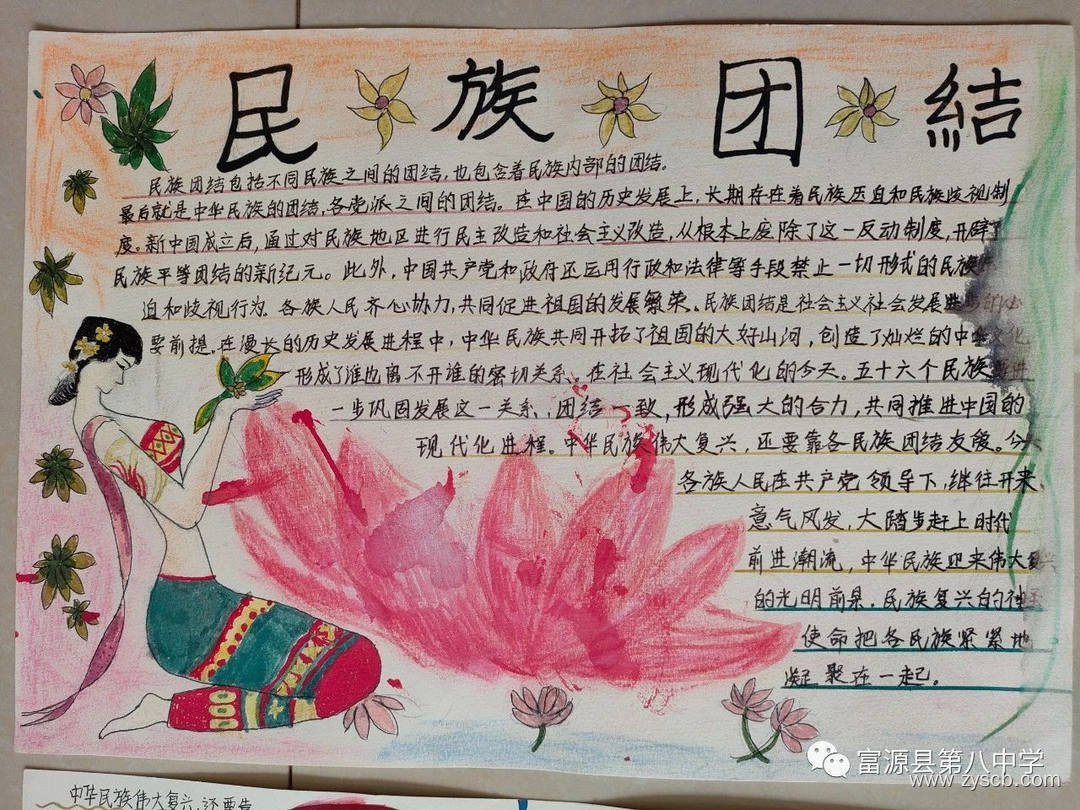 民族团結
民族团结包括不同民族之间的团结,也包含着民族内部的团结。
最后就是中华民族的团结,各党派之间的团结。在中国的历史发展上,长期存在着民族压迫和民族歧视制
度。新中国成立后,通过对民族地区进行民主改造和社会主义改造,从根本上废除了这一反动制度,开辟了
民族平等团结的新纪元。此外,中国共产党和政府还运用行政和法律等手段禁止一切形式的民族
迫和歧视行为.各族人民齐心协力,共同促进祖国的发展繁荣、民族团结是社会主义社会发展进步的
要前提.在漫长的历史发展进程中,中华民族共同开拓了祖国的大好山河,创造了灿烂的中华文化
形成了谁也离不开谁的密切关系、在社会主义现代化的今天。五十六个民族进
一步巩固发展这一关系、团结一致,形成强大的合力,共同推进中国的
现代化进程。中华民族伟大复兴,还要靠各民族团结友爱。今天
各族人民在共产党领导下,继往开来,
意气风发,大踏步赶上时代
前进潮流,中华民族迎来伟大复兴
的光明前景.民族复兴的神圣
使命把各民族紧紧地
凝聚在一起。
富源县第八中学
www.zyscb.com
中华民族伟大复兴,还要靠